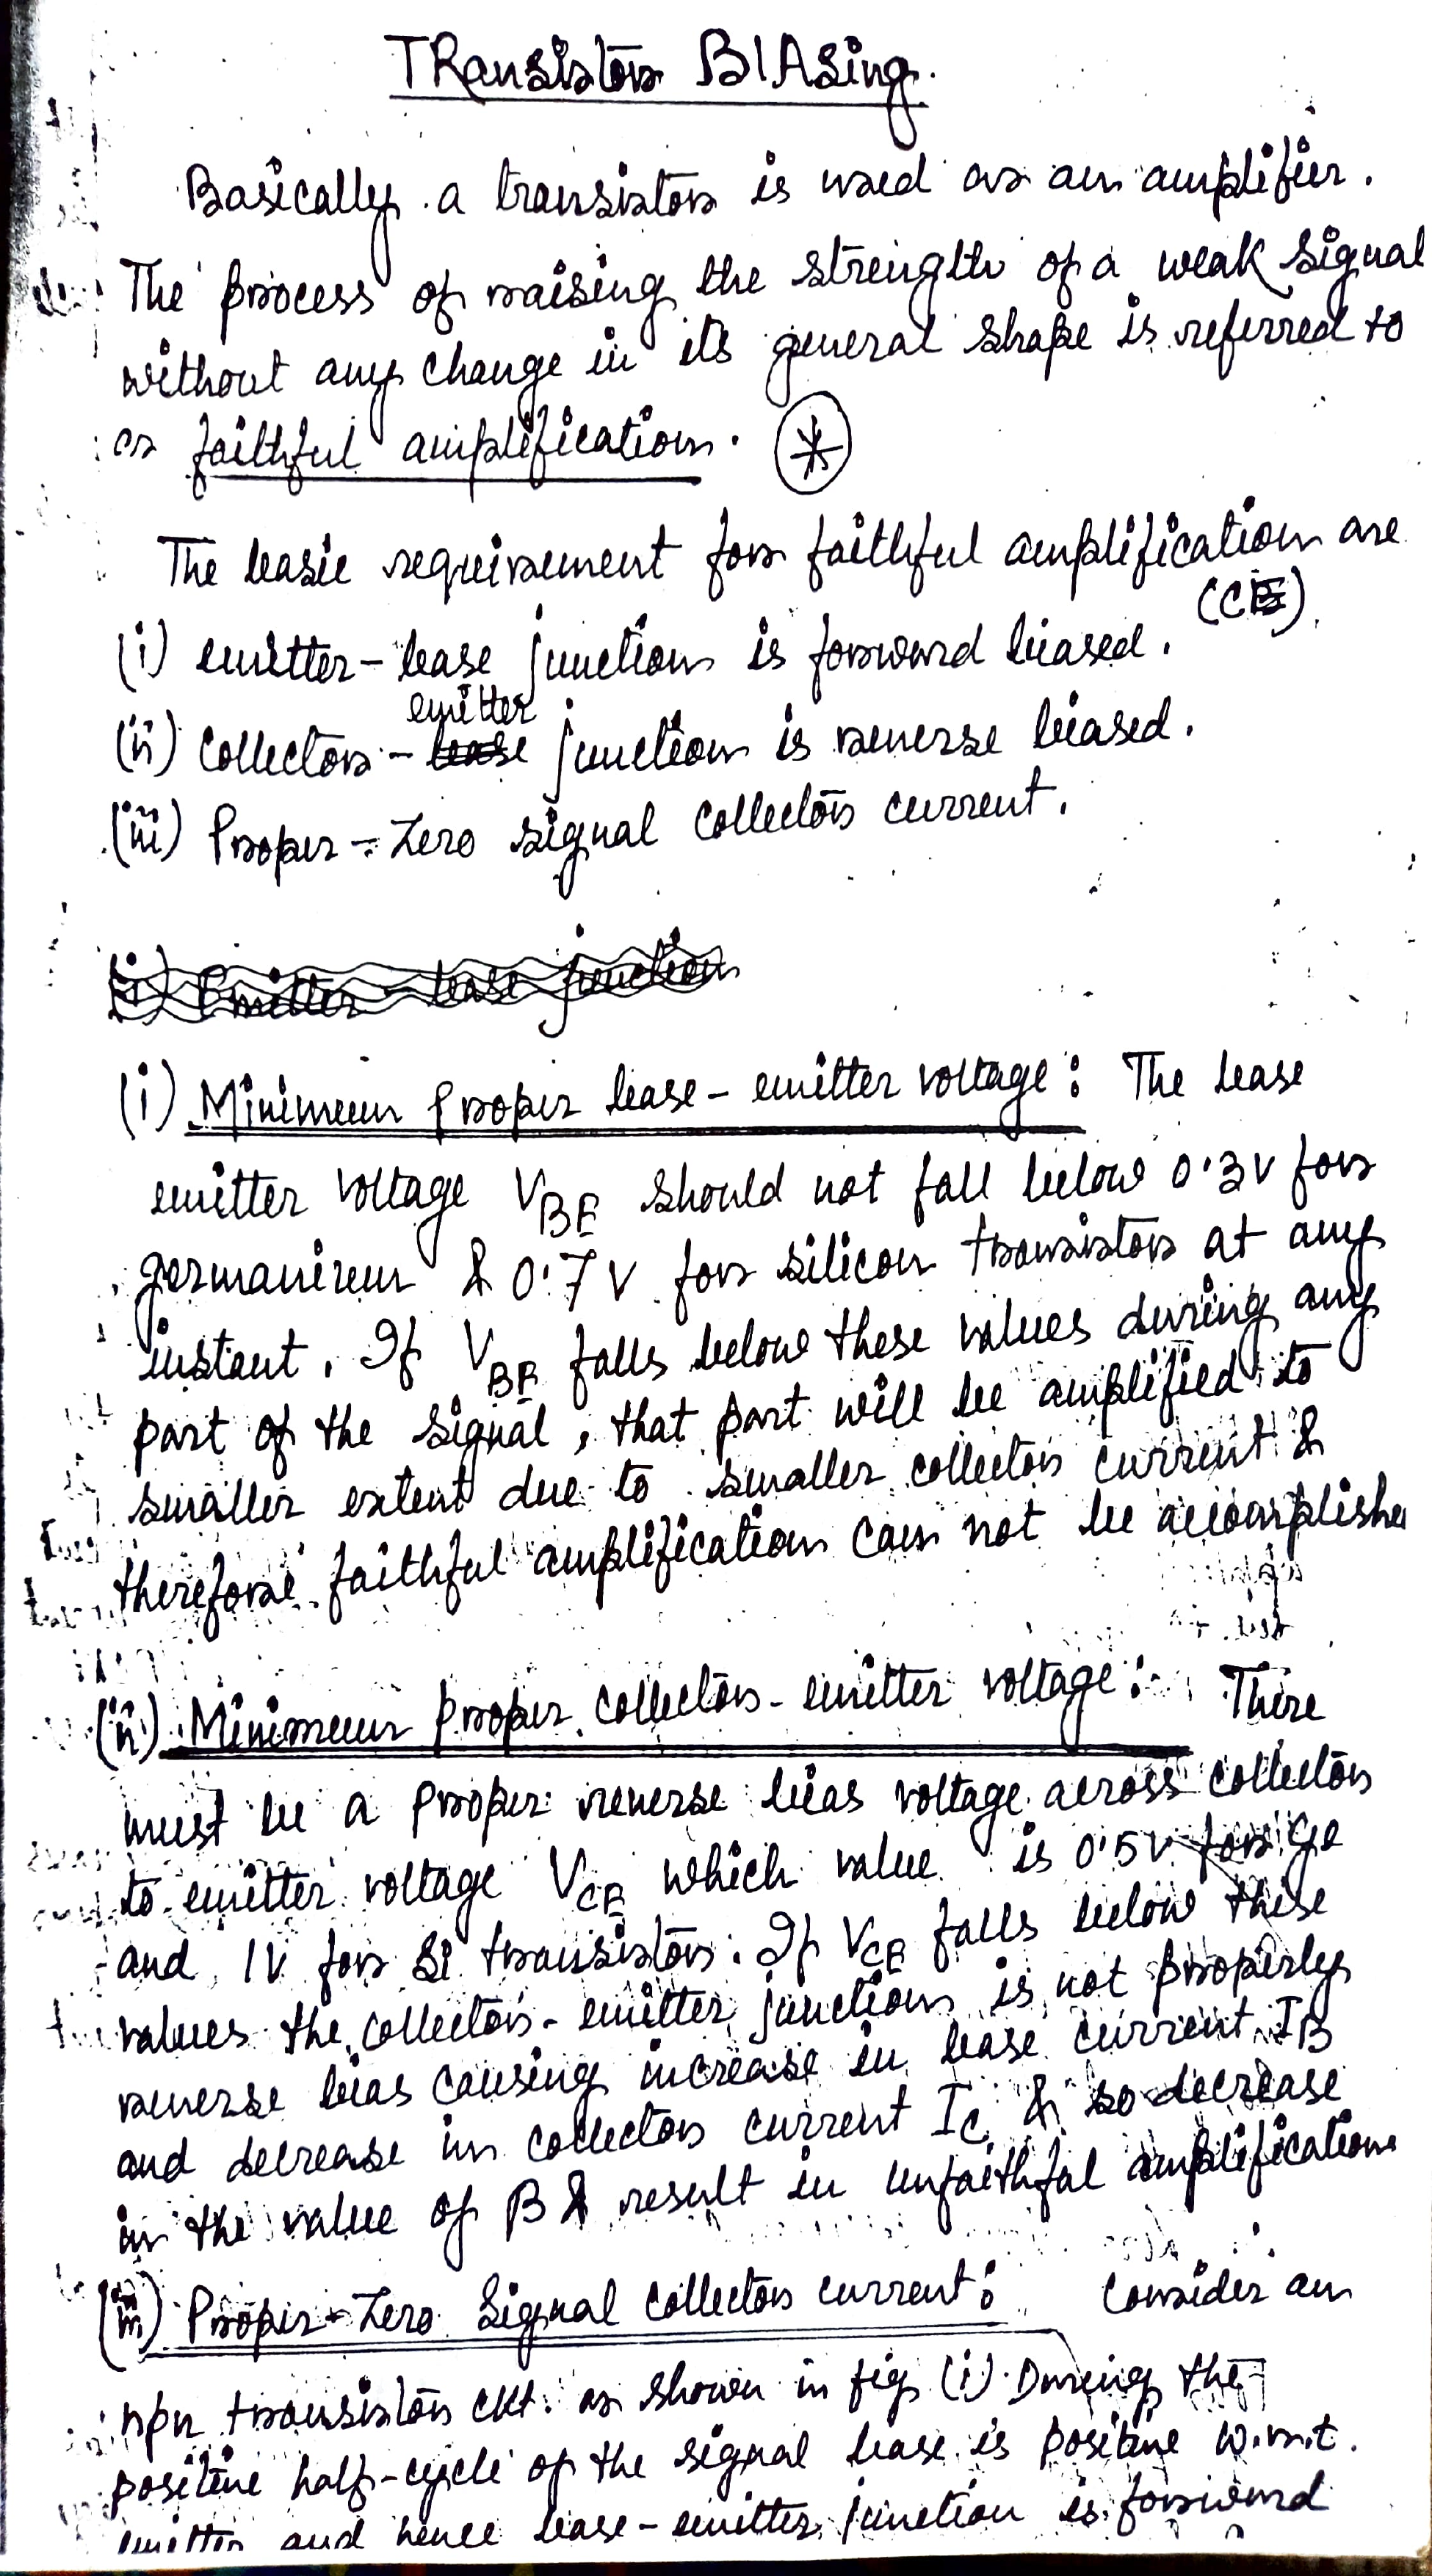 TRansistor BIAsing.
Basically a transistor is used as an amplifier.
The process of raising the strength of a weak signal
without any change in its general shape is referred to
as faithful amplification. *
The basic requirement for faithful amplification are
(CE)
(i) emitter-base junction is forward biased.
emitter
(ii) collector - base junction is reverse biased.
(iii) Proper-Zero signal collector current.
(i) Emitter - base junction
(i) Minimum proper base-emitter voltage: The base
emitter voltage VBE should not fall below 0.3V for
germanium & 0.7V for silicon transistor at any
instant. If VBE falls below these values during any
part of the signal, that part will be amplified to
smaller extent due to smaller collector current &
therefore faithful amplification can not be accomplishe
(ii) Minimum proper collector-emitter voltage: There
must be a proper reverse bias voltage across collector
to emitter voltage VCE which value is 0.5V for Ge
and 1V for Si transistor. If VCE falls below these
values the collector-emitter junction is not properly
reverse bias causing increase in base current IB
and decrease in collector current IC & so decrease
in the value of β & result in unfaithful amplification
(iii) Proper-Zero Signal collector current: Consider an
npn transistor ckt. as shown in fig (i). During the
positive half-cycle of the signal base is positive w.r.t.
emitter and hence base-emitter junction is forward